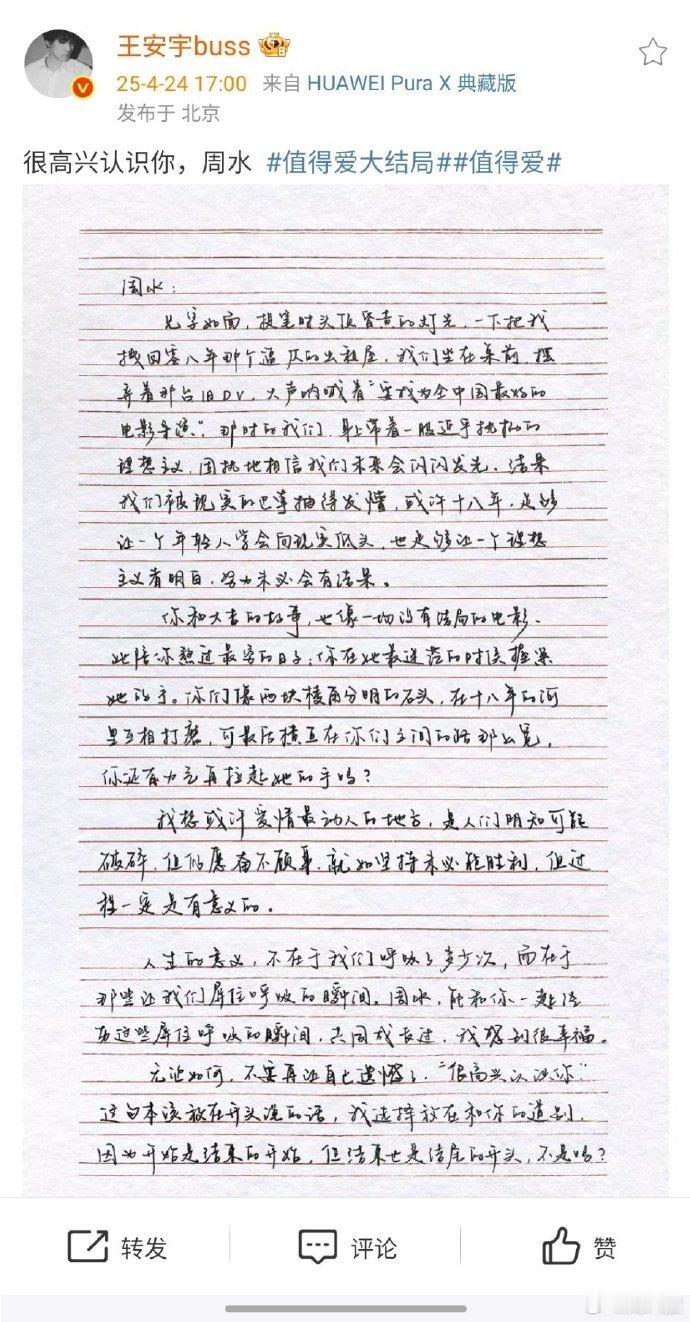 王安宇buss
25-4-24 17:00 来自 HUAWEI Pura X 典藏版
发布于 北京
很高兴认识你，周水 #值得爱大结局##值得爱#
周水：
见字如面，提笔时头顶昏黄的灯光，一下把我
拽回零八年那个逼仄的出租屋，我们坐在桌前，摆
弄着那台旧DV，大声呐喊着“要成为全中国最好的
电影导演”，那时的我们，身上带着一股近乎执拗的
理想主义，固执地相信我们未来会闪闪发光，结果
我们被现实的巴掌抽得发懵，或许十八年，足够
让一个年轻人学会向现实低头，也足够让一个理想
主义者明白，努力未必会有结果。
你和大吉的故事，也像一场没有结局的电影，
她陪你熬过最穷的日子，你在她最迷茫的时候握紧
她的手。你们像两块棱角分明的石头，在十八年的河
里互相打磨，可最后横亘在你们之间的路那么宽，
你还有力气再拉起她的手吗？
我想或许爱情最动人的地方，是人们明知可能
破碎，但仍愿奋不顾身，就如坚持未必能胜利，但过
程一定是有意义的。
人生的意义，不在于我们呼吸了多少次，而在于
那些让我们屏住呼吸的瞬间。周水，能和你一起经
历这些屏住呼吸的瞬间，共同成长过，我感到很幸福。
无论如何，不要再让自己遗憾了，“很高兴认识你”
这句本该放在开头说的话，我选择放在和你的道别，
因为开始是结束的开始，但结束也是结尾的开头，不是吗？
转发
评论
赞